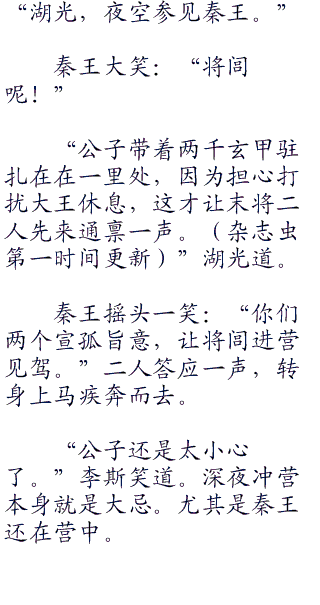 “湖光，夜空参见秦王。”
秦王大笑：“将闾
呢！”
“公子带着两千玄甲驻
扎在在一里处，因为担心打
扰大王休息，这才让末将二
人先来通禀一声。（杂志虫
第一时间更新）”湖光道。
秦王摇头一笑：“你们
两个宣孤旨意，让将闾进营
见驾。”二人答应一声，转
身上马疾奔而去。
“公子还是太小心
了。”李斯笑道。深夜冲营
本身就是大忌。尤其是秦王
还在营中。